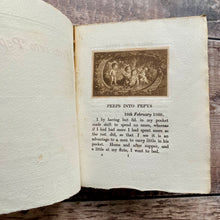 PEEPS INTO PEPYS
16th February 1660.
I by having but 3d. in my pocket
made shift to spend no more, whereas
if I had had more I had spent more as
the rest did, so that I see it is an
advantage to a man to carry little in his
pocket. Home and after supper, and
a little at my flute, I went to bed.